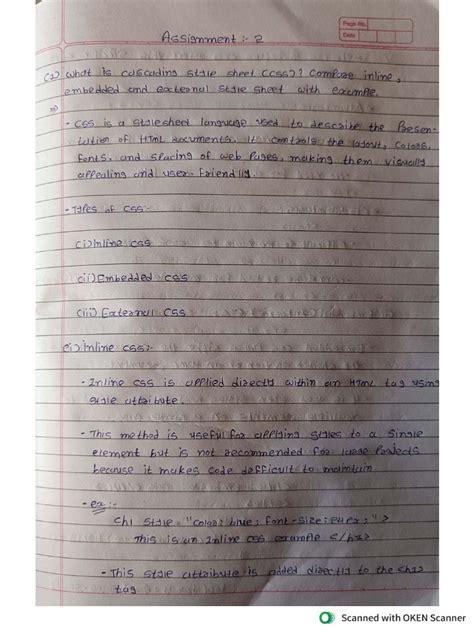 Page No.
Date
Assignment :- 2
Q1) What is cascading style sheet (CSS)? Compare inline,
embedded and external style sheet with example.
=>
- CSS is a stylesheet language used to describe the Presen-
tation of HTML documents. It controls the layout, Colors,
fonts, and spacing of web Pages, making them visually
appealing and user-friendly.
- Types of CSS:-
(i) Inline CSS
(ii) Embedded CSS
(iii) External CSS
(i) Inline CSS:-
- Inline CSS is applied directly within an HTML tag using
style attribute.
- This method is useful for applying styles to a single
element but is not recommended for large Projects
because it makes code difficult to maintain.
- ex :-
<h1 style = "color: blue; font-size: 24px;">
This is an Inline CSS example </h1>
- This style attribute is added directly to the <h1>
tag
Scanned with OKEN Scanner